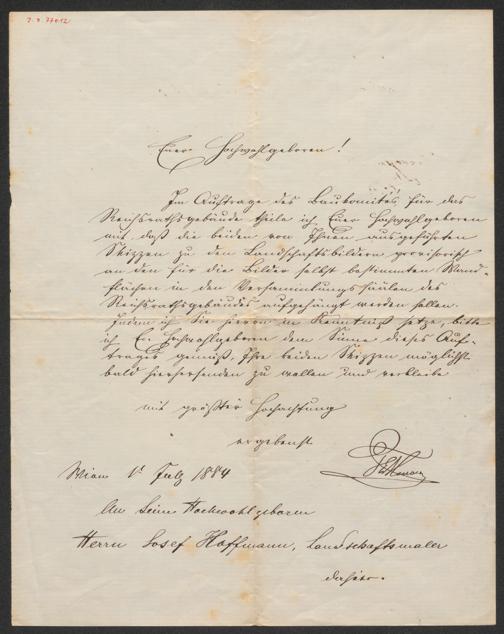 Euer Hochwohlgeboren!
Im Auftrage des Baukomites für das
Reichsrathsgebäude theile ich Euer Hochwohlgeboren
mit, daß die beiden von Ihnen ausgeführten
Skizzen zu den Landschaftsbildern provisorisch
an den für die Bilder selbst bestimmten Wand-
flächen in den Versammlungssäulen des
Reichsrathsgebäudes aufgehängt werden sollen.
Indem ich Sie hievon in Kenntniß setze, bitte
ich Er Hochwohlgeboren dem Sinne dieses Auf-
trages gemäß, Ihre beiden Skizzen möglichst
bald hiersenden zu wollen und verbleibe
mit größter Hochachtung
ergebenst
Wien 1 July 1884
An Seine Hochwohlgeboren
Herrn Josef Hoffmann, Landschaftsmaler
dahier.